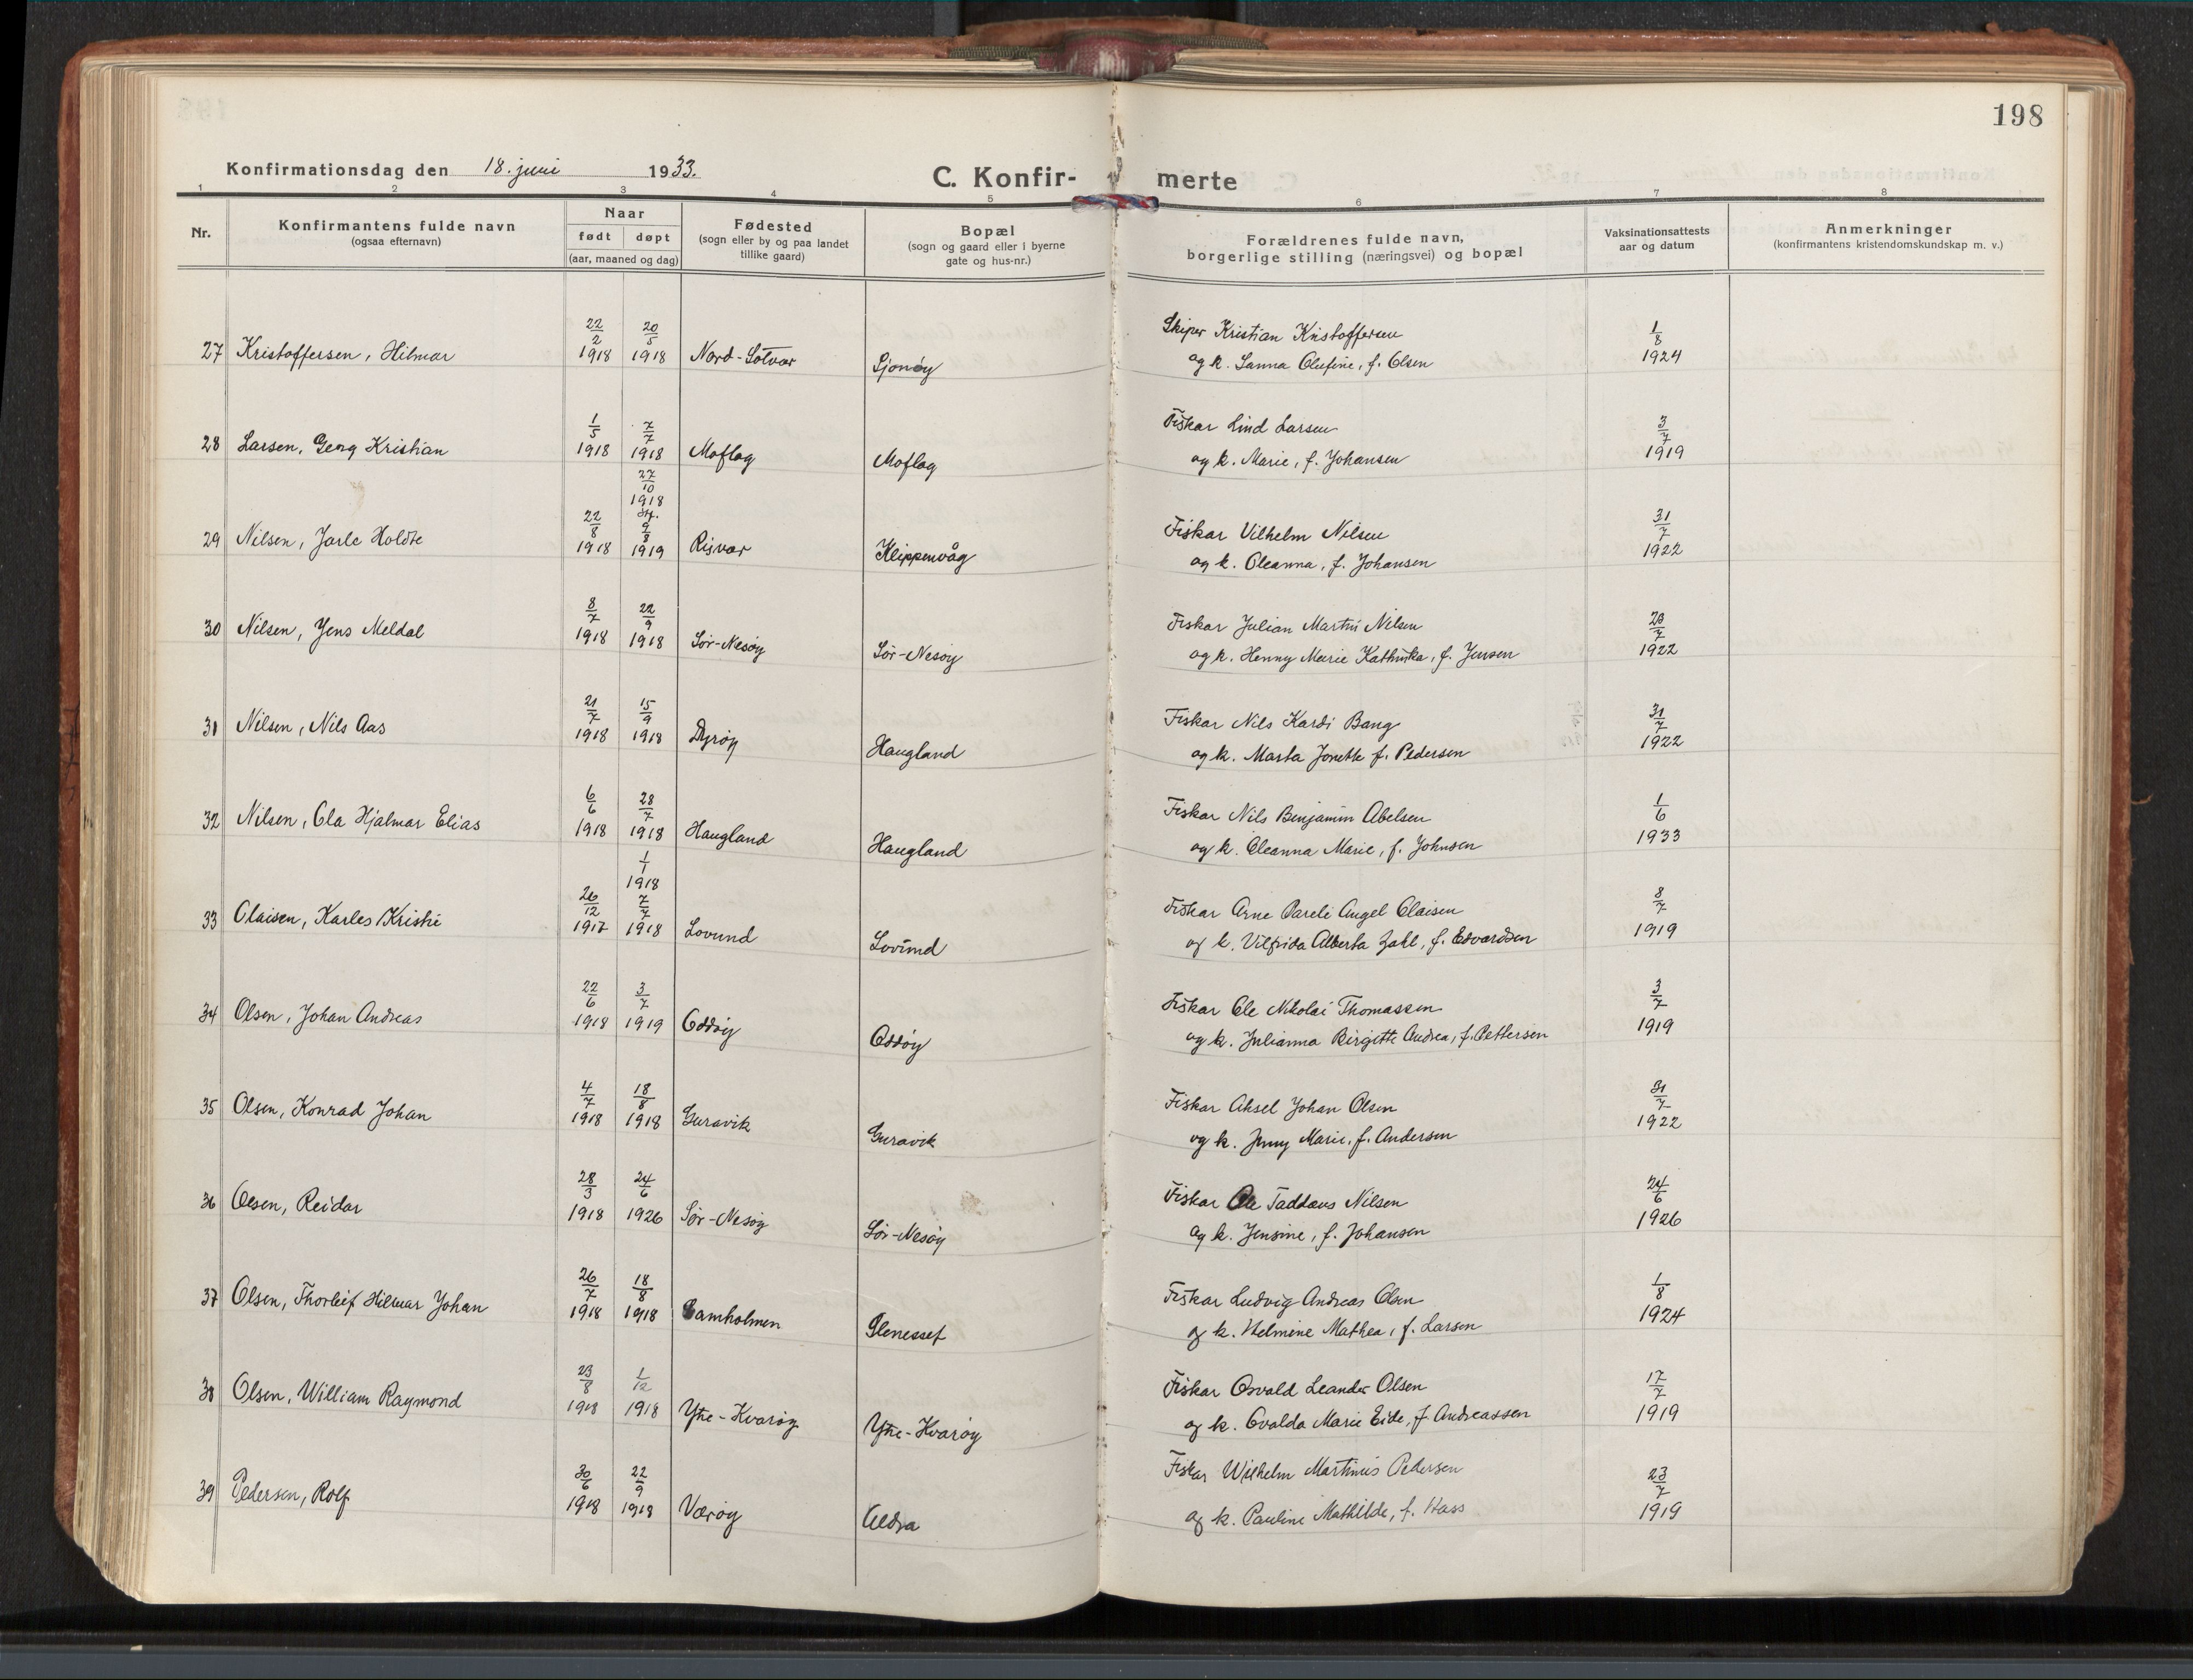 198
Konfirmationsdag den 18. juni 1933.
C. Konfir- merte
1 2 3 4 5 6 7 8
Nr.
Konfirmantens fulde navn
(ogsaa efternavn)
Naar
født døpt
(aar, maaned og dag)
Fødested
(sogn eller by og paa landet
tillike gaard)
Bopæl
(sogn og gaard eller i byerne
gate og hus-nr.)
Forældrenes fulde navn,
borgerlige stilling (næringsvei) og bopæl
Vaksinationsattests
aar og datum
Anmerkninger
(konfirmantens kristendomskundskap m. v.)
22/2 20/5 Skiper Kristian Kristoffersen 1/8
27 Kristoffersen, Hilmar 1918 1918 Nord-Solvær Sjonøy og k. Sanna Olufine, f. Olsen 1924
1/5 7/7 Fiskar Lind Larsen 3/7
28 Larsen, Georg Kristian 1918 1918 Moflag Moflag og k. Marie, f. Johansen 1919
27/10
1918
st.
22/8 9/8 Fiskar Vilhelm Nilsen 31/7
29 Nilsen, Jarle Holdte 1918 1919 Risvær Klippenvåg og k. Oleanna, f. Johansen 1922
8/7 22/9 Fiskar Julian Martin Nilsen 23/7
30 Nilsen, Jens Meldal 1918 1918 Sør-Nesøy Sør-Nesøy og k. Henny Marie Kathinka, f. Jensen 1922
21/7 15/9 Fiskar Nils Kardi Bang 31/7
31 Nilsen, Nils Aas 1918 1918 Dyrøy Haugland og k. Marta Jonette f. Pedersen 1922
6/6 28/7 Fiskar Nils Benjamin Abelsen 1/6
32 Nilsen, Ola Hjalmar Elias 1918 1918 Haugland Haugland og k. Oleanna Marie, f. Johnsen 1933
1/1
1918
26/12 7/7 Fiskar Arne Pareli Angel Olaisen 8/7
33 Olaisen, Karles Kristie 1917 1918 Lovund Lovund og k. Vilfrida Alberta Zahl, f. Edvardsen 1919
22/6 3/7 Fiskar Ole Nikolai Thomassen 3/7
34 Olsen, Johan Andreas 1918 1919 Oddøy Oddøy og k. Julianna Birgitte Andrea, f. Pettersen 1919
4/7 18/8 Fiskar Aksel Johan Olsen 31/7
35 Olsen, Konrad Johan 1918 1918 Guravik Guravik og k. Jenny Marie, f. Andersen 1922
28/3 24/6 Fiskar Ole Taddæus Nilsen 24/6
36 Olsen, Reidar 1918 1926 Sør-Nesøy Sør-Nesøy og k. Jensine, f. Johansen 1926
26/7 18/8 Fiskar Ludvig Andreas Olsen 1/8
37 Olsen, Thorleif Hilmar Johan 1918 1918 Gamholmen Slenesset og k. Helmine Mathea, f. Larsen 1924
23/8 1/12 Fiskar Osvald Leander Olsen 17/7
38 Olsen, William Raymond 1918 1918 Ytre-Kvarøy Ytre-Kvarøy og k. Ovalda Marie Eide, f. Andreassen 1919
30/6 22/9 Fiskar Wilhelm Martinus Pedersen 23/7
39 Pedersen, Rolf 1918 1918 Værøy Aldra og k. Pauline Mathilde, f. Hass 1919